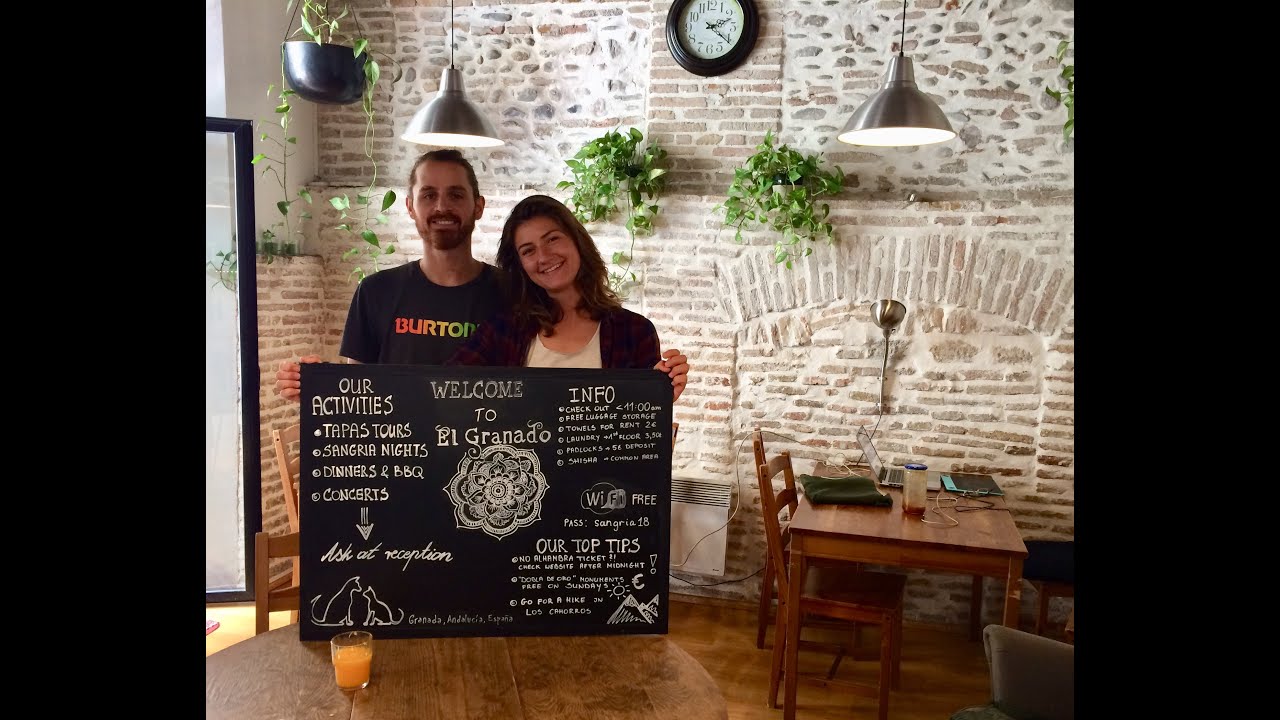 BURTON
OUR
ACTIVITIES
TAPAS TOURS
SANGRIA NIGHTS
DINNERS & BBQ
CONCERTS
Ask at reception
WELCOME
TO
El Granado
Granada, Andalucía, España
INFO
CHECK OUT <11:00am
FREE LUGGAGE STORAGE
TOWELS FOR RENT 2€
LAUNDRY → 1st FLOOR 3,50€
PADLOCKS → 5€ DEPOSIT
SHISHA → COMMON AREA
WiFi FREE
PASS: sangria18
OUR TOP TIPS
NO ALHAMBRA TICKET?!
CHECK WEBSITE AFTER MIDNIGHT!
"DOBLA DE ORO" MONUMENTS
FREE ON SUNDAYS €
GO FOR A HIKE IN
LOS CAHORROS